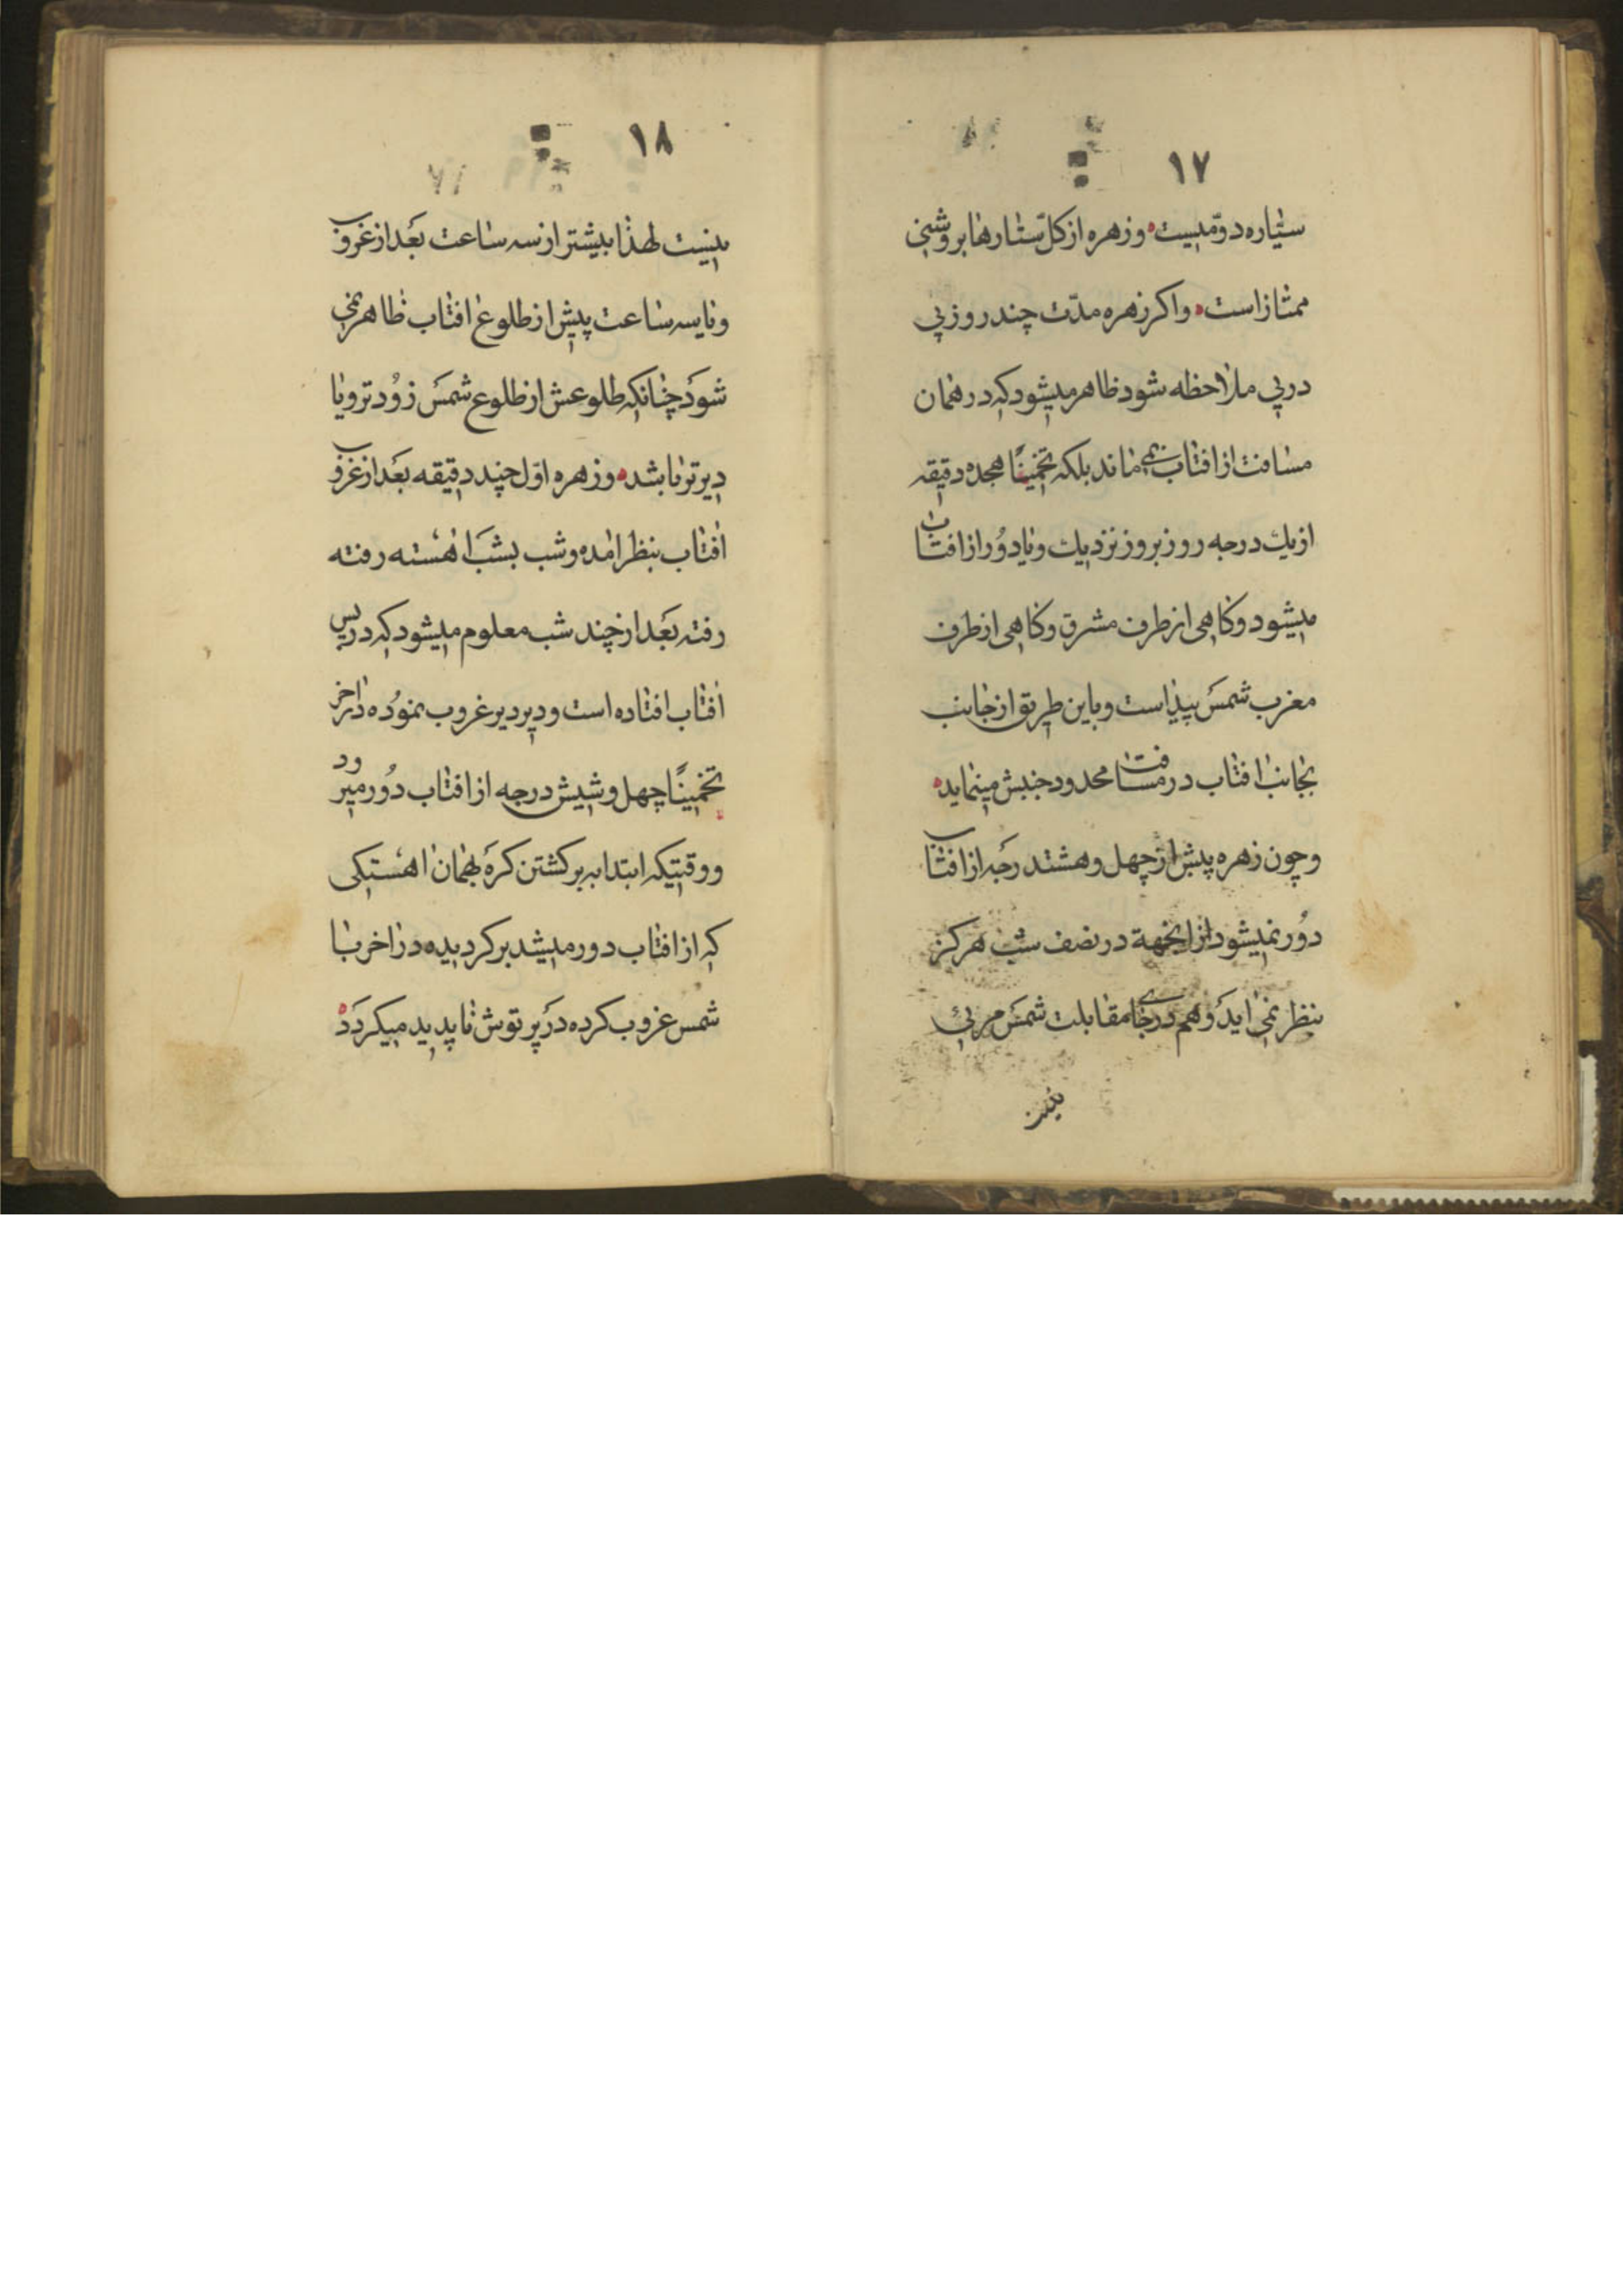 ١٧
سیّاره دوّمیست وزهره از کلّ ستارها بروشنی
ممتاز است واکر زهره مدّت چند روز پی
در پی ملاحظه شود ظاهر میشود که در همان
مسافت از افتاب نمی ماند بلکه تخمینًا هجده دقیقه
از یك درجه روز بروز نزدیك ویا دُور از افتاب
میشود وکاهی از طرف مشرق وکاهی از طرف
مغرب شمس پیداست وباین طریق از جانب
بجانب افتاب در مسافت محدود جنبش مینماید
وچون زهره پیش از چهل وهشت درجه از افتاب
دُور نمیشود از انجهة در نصف شب هرکز
بنظر نمی اید وهم در جای مقابلت شمس مرئی
نیست
١٨
نیست لهذا بیشتر از سه ساعت بعد از غروب
ویا سه ساعت پیش از طلوع افتاب ظاهر نمی
شود چنانکه طلوعش از طلوع شمس زُود تر ویا
دیر تر باشد وزهره اوّل چند دقیقه بعد از غرو
افتاب بنظر امده وشب بشب اهسته رفته
رفته بعد از چند شب معلوم میشود که در پس
افتاب افتاده است ودیر دیر غروب نمُوده در اخر
تخمینًا چهل وشیش درجه از افتاب دُور میرود
ووقتیکه ابتدا به برکشتن کرد بهمان اهستکی
که از افتاب دور میشد برکردیده در اخر با
شمس غروب کرده در پرتوش ناپدید میکردد